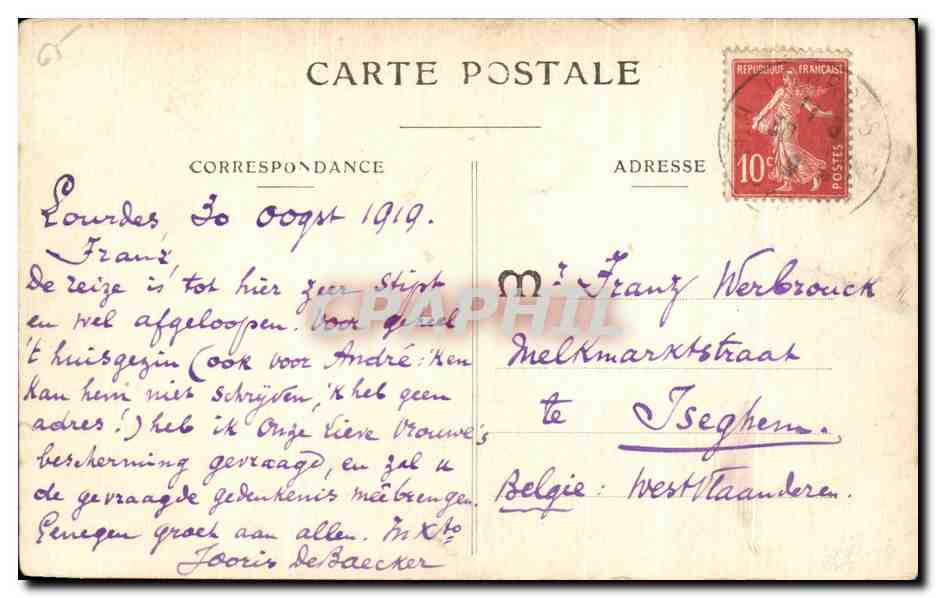 65
CARTE POSTALE
REPUBLIQUE FRANÇAISE
10c
POSTES
CORRESPONDANCE
ADRESSE
Lourdes, 30 oogst 1919.
Franz,
De reize is tot hier zeer stipt
en wel afgeloopen. Voor geheel
't huisgezin (ook voor André: 'k en
kan hem niet schrijven, 'k heb geen
adres!) heb ik Onze Lieve Vrouwe's
bescherming gevraagd, en zal u
de gevraagde gedenkenis meêbrengen.
Genegen groet aan allen. In Xto
Jooris De Baecker
Mr. Franz Werbrouck
Melkmarktstraat
te Iseghem.
België: West Vlaanderen.
CPAPHIL